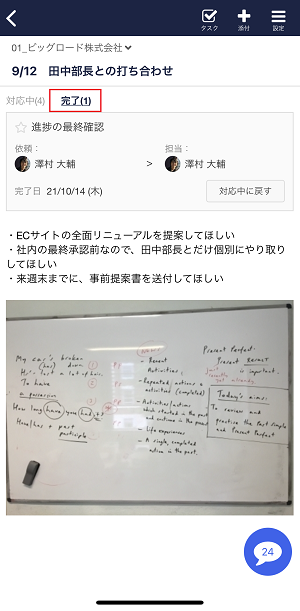 タスク
添付
設定
01_ビッグロード株式会社
9/12 田中部長との打ち合わせ
対応中(4) 完了(1)
進捗の最終確認
依頼： 担当：
澤村 大輔 > 澤村 大輔
完了日 21/10/14 (木) 対応中に戻す
・ECサイトの全面リニューアルを提案してほしい
・社内の最終承認前なので、田中部長とだけ個別にやり取り
してほしい
・来週末までに、事前提案書を送付してほしい
My car's broken
down
He's lost a lot of hair.
To have
a possession
How long have you had it?
Have/has + past
participle
- Recent
Activities
- Repeated actions
activities (completed)
- Activities/actions
which started in the past
and continue in the present
- Life experiences
- A single, completed
action in the past.
Present Perfect
Present
is important.
Just
yet already
Today's aims:
To review and
practice the Past Simple
and Present Perfect
24